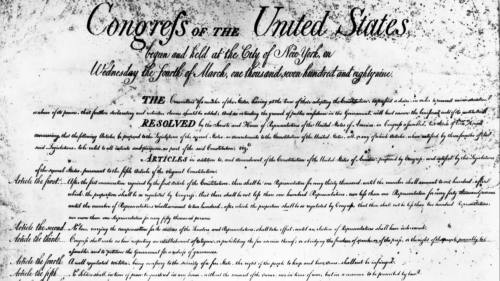 Congreſs OF THE United States,
begun and held at the City of New-York, on
Wednesday the fourth of March, one thousand seven hundred and eighty nine.
THE Conventions of a number of the States, having at the time of their adopting the Constitution, expreſsed a desire, in order to prevent misconstruction
or abuse of its powers, that further declaratory and restrictive clauses should be added: And as extending the ground of public confidence in the Government, will best ensure the beneficent ends of its institution.
RESOLVED by the Senate and House of Representatives of the United States of America, in Congreſs aſsembled, two thirds of both Houses
concurring, that the following Articles be proposed to the Legislatures of the several States, as amendments to the Constitution of the United States, all, or any of which Articles, when ratified by three fourths of the said
Legislatures, to be valid to all intents and purposes, as part of the said Constitution; viz.
ARTICLES in addition to, and Amendment of the Constitution of the United States of America, proposed by Congreſs, and ratified by the Legislatures
of the several States, pursuant to the fifth Article of the original Constitution.
Article the first. After the first enumeration required by the first Article of the Constitution, there shall be one Representative for every thirty thousand, until the number shall amount to one hundred, after
which, the proportion shall be so regulated by Congreſs, that there shall be not leſs than one hundred Representatives, nor leſs than one Representative for every forty thousand persons,
until the number of Representatives shall amount to two hundred, after which the proportion shall be so regulated by Congreſs, that there shall not be leſs than two hundred Representatives,
nor more than one Representative for every fifty thousand persons.
Article the second. No law, varying the compensation for the services of the Senators and Representatives, shall take effect, until an election of Representatives shall have intervened.
Article the third. Congreſs shall make no law respecting an establishment of religion, or prohibiting the free exercise thereof; or abridging the freedom of speech, or of the preſs; or the right of the people peaceably to
aſsemble, and to petition the Government for a redreſs of grievances.
Article the fourth. A well regulated militia, being neceſsary to the security of a free State, the right of the people to keep and bear arms, shall not be infringed.
Article the fifth. No Soldier shall, in time of peace be quartered in any house, without the consent of the owner, nor in time of war, but in a manner to be prescribed by law.